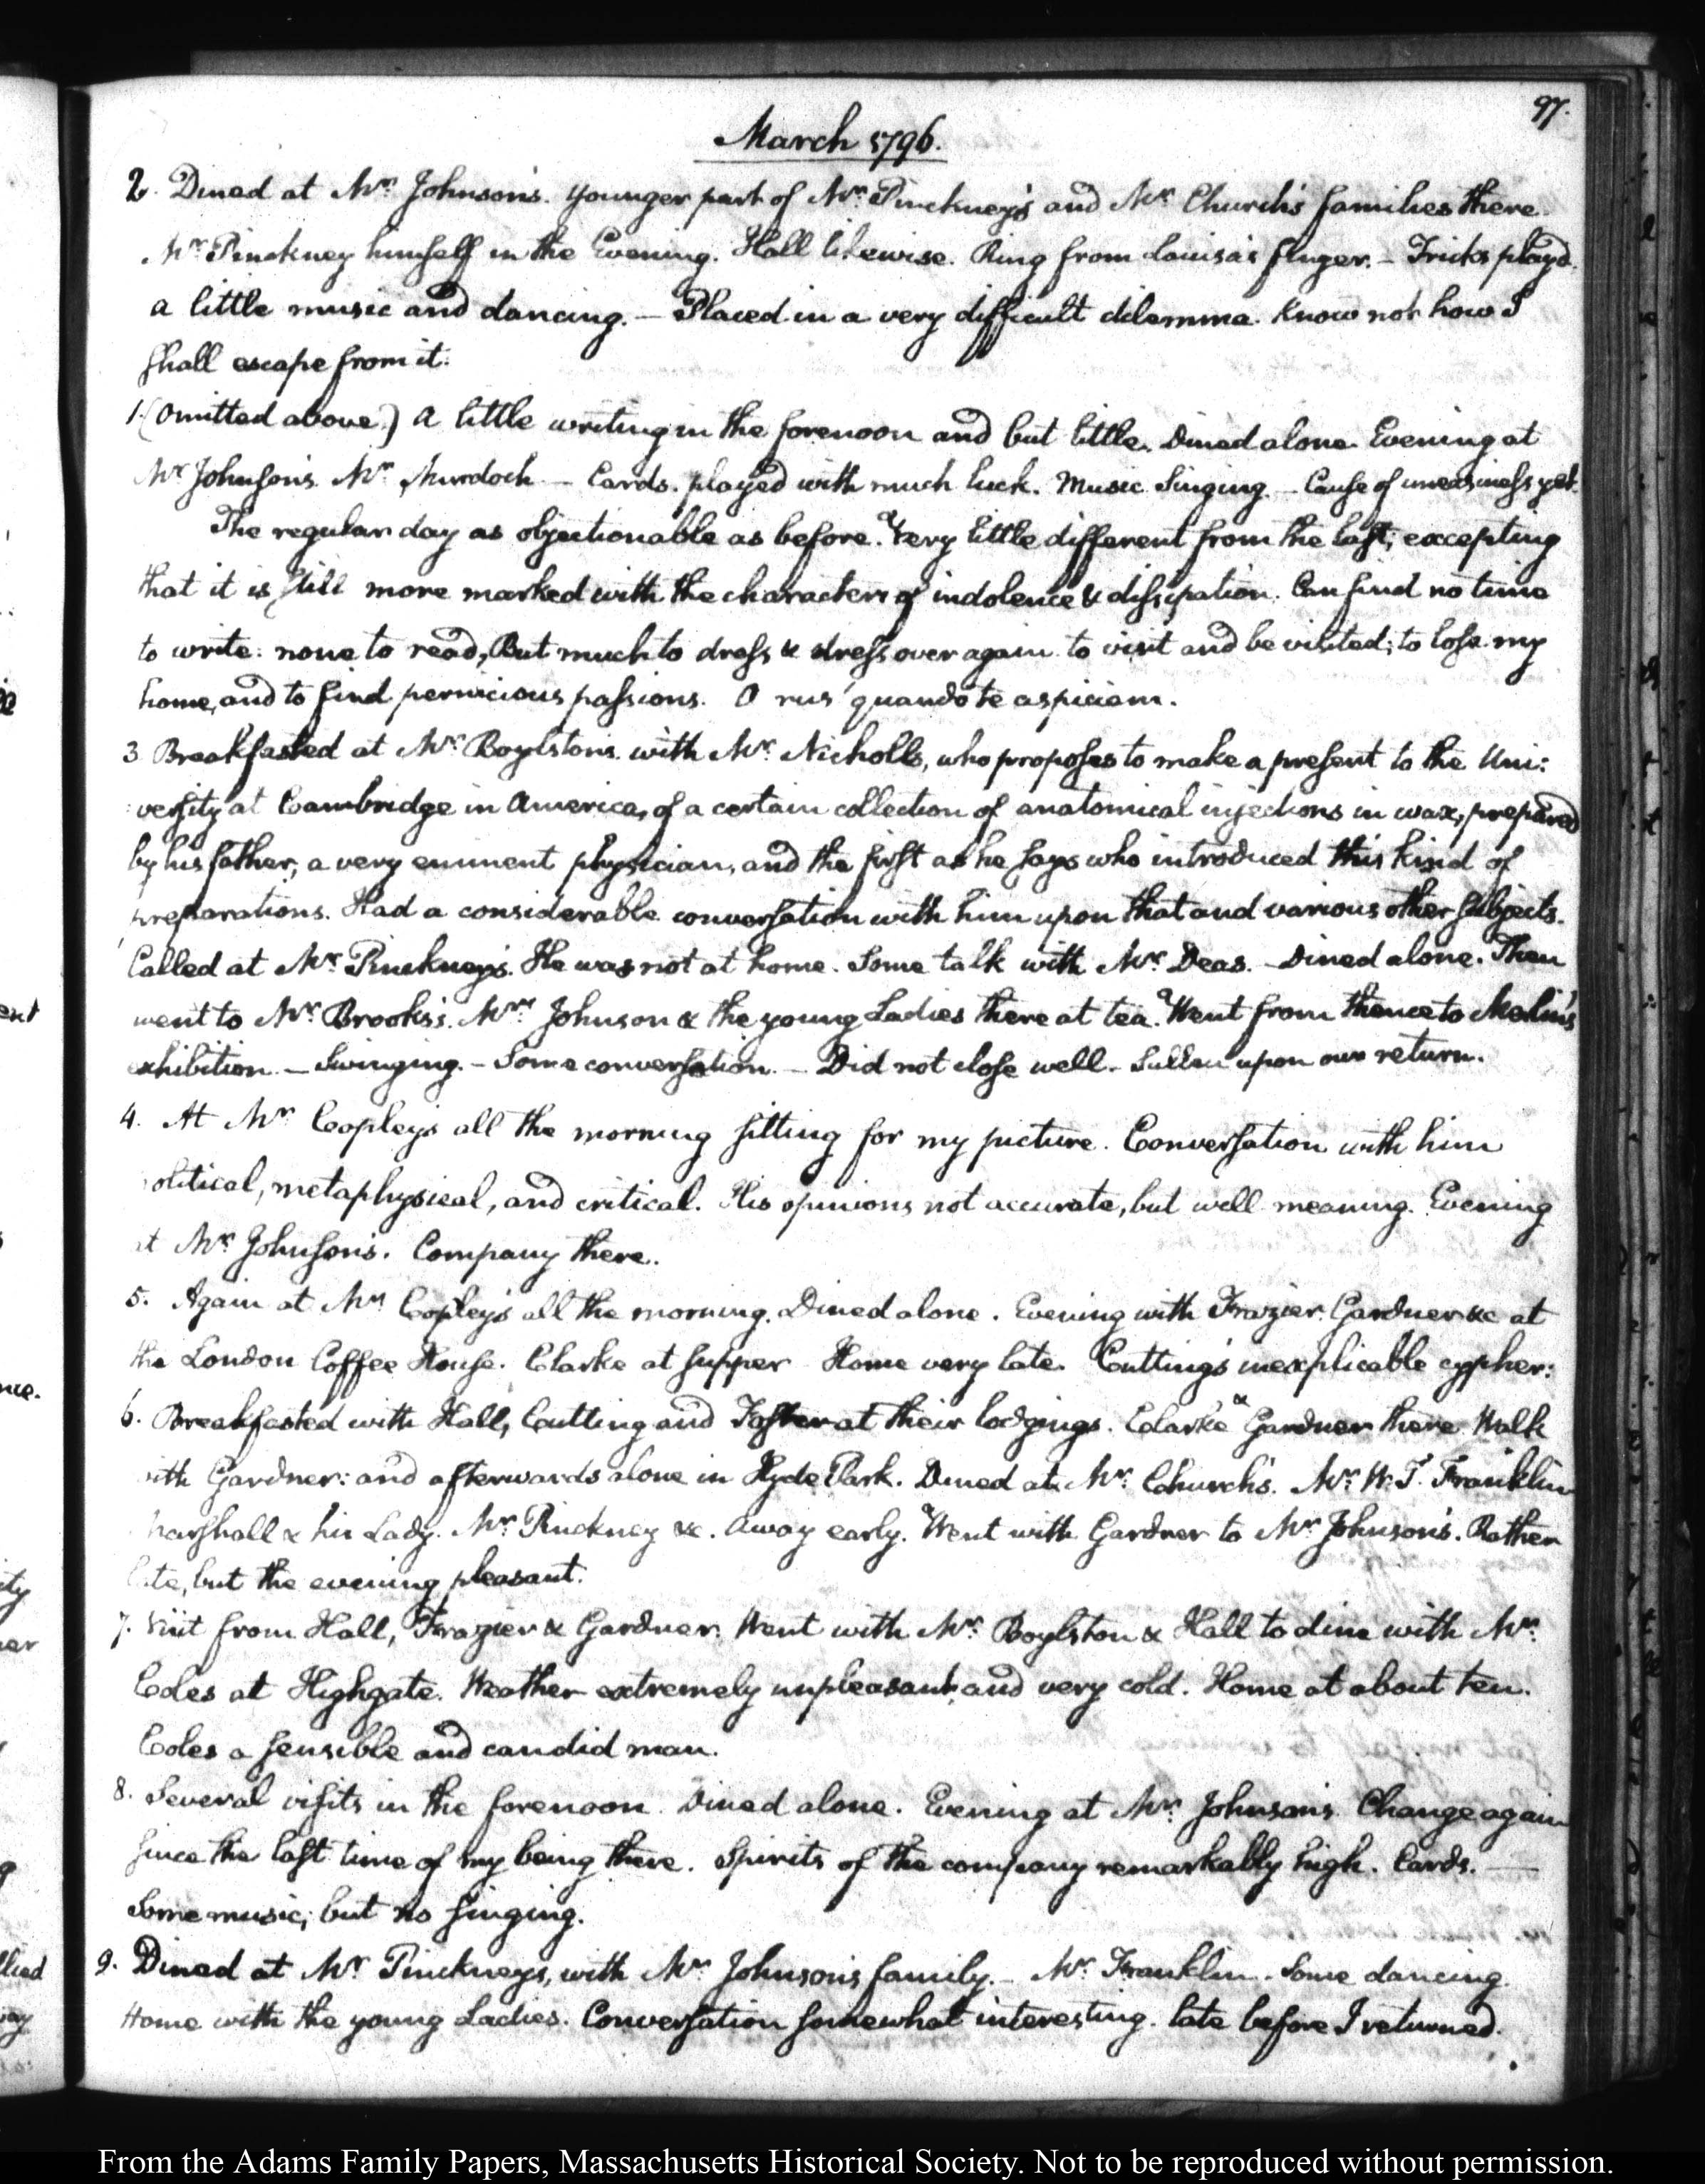 97.
March 1796.
2. Dined at Mr. Johnson's. Younger part of Mr. Pinckney's and Mr. Church's families there.
Mr. Pinckney himself in the Evening. Hall likewise. Ring from Louisa's finger. — Tricks play'd.
a little music and dancing. — Placed in a very difficult dilemma. Know not how I
shall escape from it.
1. (Omitted above.) A little writing in the forenoon and but little. Dined alone. Evening at
Mr. Johnson's. Mr. Murdoch — Cards. played with much luck. Music. Singing. — Cause of uneasiness yet.
The regular day as objectionable as before. & very little different from the last; excepting
that it is still more marked with the characters of indolence & dissipation. Can find no time
to write: none to read, But much to dress & dress over again. to visit and be visited; to lose my
home, and to find pernicious passions. O rus quando te aspiciam.
3. Breakfasted at Mr. Boylston's with Mr. Nicholls, who proposes to make a present to the Uni:
:versity at Cambridge in America, of a certain collection of anatomical injections in wax, prepared
by his father, a very eminent physician, and the first as he says who introduced this kind of
preparations. Had a considerable conversation with him upon that and various other subjects.
Called at Mr. Pinckney's. He was not at home. Some talk with Mr. Deas. — Dined alone. Then
went to Mr. Brooks's. Mrs. Johnson & the young Ladies there at tea. Went from thence to Merlin's
exhibition — Swinging. — Some conversation. — Did not close well. Sullen upon our return.
4. At Mr. Copley's all the morning sitting for my picture. Conversation with him
political, metaphysical, and critical. His opinions not accurate, but well meaning. Evening
at Mr. Johnson's. Company there.
5. Again at Mr. Copley's all the morning. Dined alone. Evening with Frazier, Gardner &c at
the London Coffee House. Clarke at supper. Home very late. Cutting's inexplicable cypher:
6. Breakfasted with Hall, Cutting and Foster at their lodgings. Clarke & Gardner there. Walk
with Gardner: and afterwards alone in Hyde Park. Dined at Mr. Church's. Mr. W. T. Franklin
Marshall & his Lady. Mr. Pinckney &c. Away early. Went with Gardner to Mr. Johnson's. Rather
late, but the evening pleasant.
7. Visit from Hall, Frazier & Gardner. Went with Mr. Boylston & Hall to dine with Mr.
Coles at Highgate. Weather extremely unpleasant, and very cold. Home at about ten.
Coles a sensible and candid man.
8. Several visits in the forenoon. Dined alone. Evening at Mr. Johnson's. Change again
since the last time of my being there. Spirits of the company remarkably high. Cards. —
Some music; but no singing.
9. Dined at Mr. Pinckney's, with Mr. Johnson's family. — Mr. Franklin. Some dancing.
Home with the young Ladies. Conversation somewhat interesting. late before I returned.
From the Adams Family Papers, Massachusetts Historical Society. Not to be reproduced without permission.